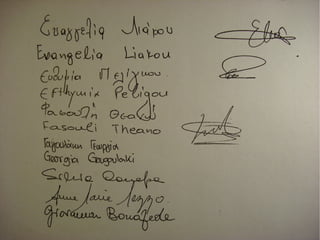 Ευαγγελία Λιάκου
Evangelia Liakou
Ευθυμία Πελίγκου
Efthymia Peligou
Φασουλή Θεανώ
Fasouli Theano
Γαγουλάκη Γεωργία
Georgia Gagoulaki
Silvia
Anne Marie
Giovanna Bonafede